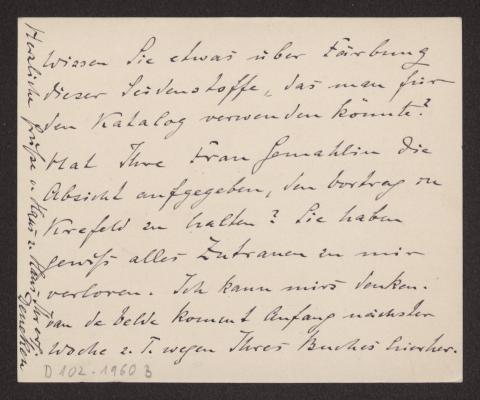 Wissen Sie etwas über Färbung
dieser Seidenstoffe, das man für
den Katalog verwenden könnte?
Hat Ihre Frau Gemahlin die
Absicht aufgegeben, den Vortrag in
Krefeld zu halten? Sie haben
gewiß alles Zutrauen zu mir
verloren. Ich kann mirs denken.
van de Velde kommt Anfang nächster
Woche z. T. wegen Ihres Buches hierher.
Herzliche Grüße v. Haus z. Haus Ihr erg.
Deneken
D 102.1960 B